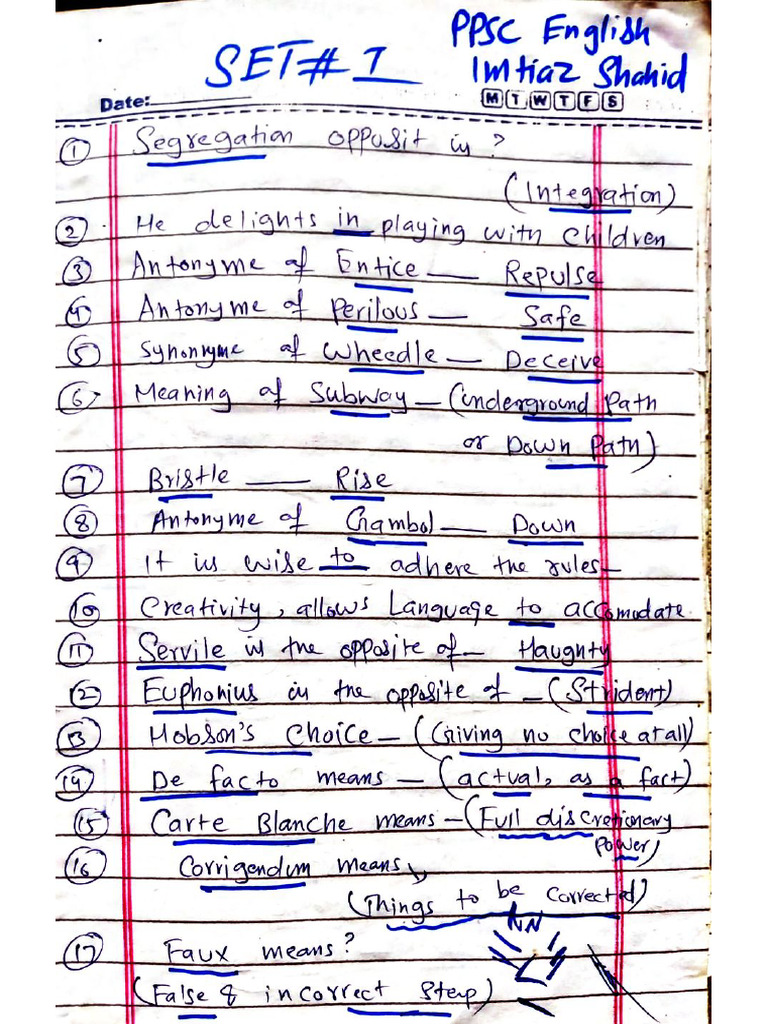 PPSC English
SET # I
Imtiaz Shahid
Date:
M T W T F S
① Segregation opposit is?
(Integration)
② He delights in playing with children
③ Antonyme of Entice — Repulse
④ Antonyme of Perilous — Safe
⑤ Synonyme of Wheedle — Deceive
⑥ Meaning of Subway — (underground Path
or Down Path)
⑦ Bristle — Rise
⑧ Antonyme of Gambol — Down
⑨ It is wise to adhere the rules—
⑩ Creativity, allows Language to accomodate
⑪ Servile is the opposite of— Haughty
⑫ Euphonius is the opposite of — (Strident)
⑬ Hobson's Choice — (Giving no choice at all)
⑭ De facto means — (actual, as a fact)
⑮ Carte Blanche means — (Full discretionary
Power)
⑯ Corrigendum means,
(Things to be corrected)
⑰ Faux means?
(False & incorrect step)